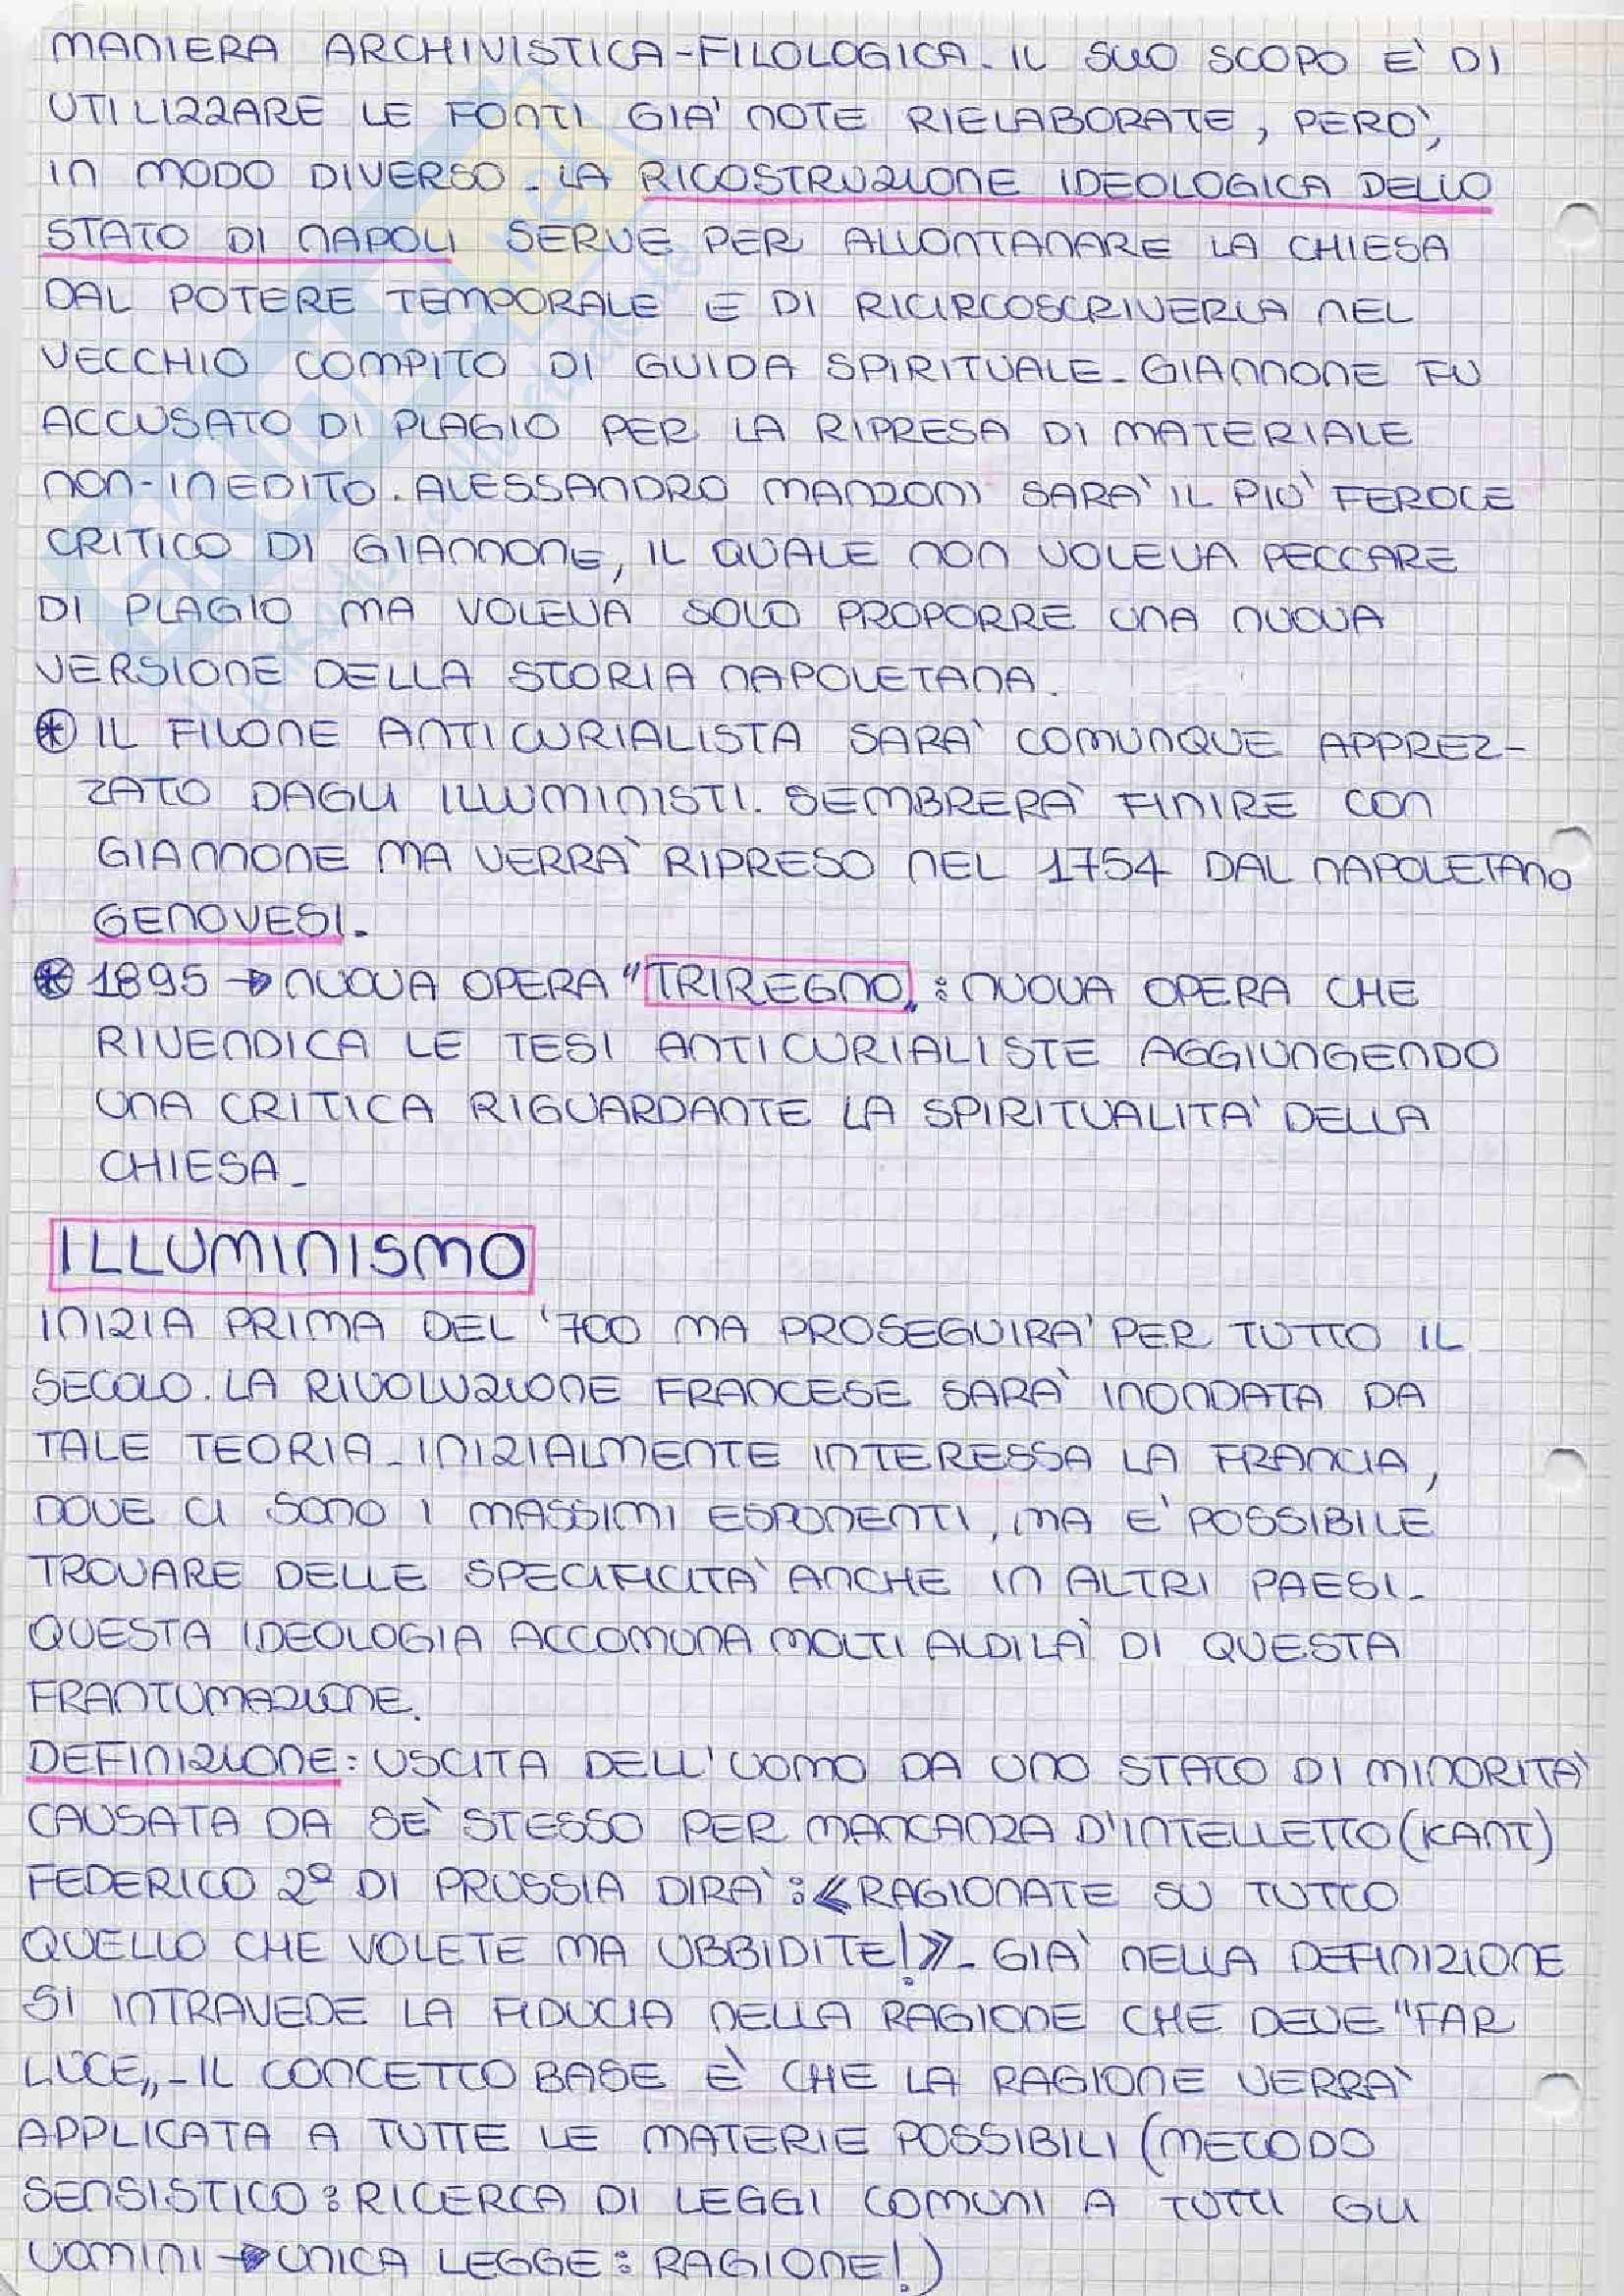 MANIERA ARCHIVISTICA-FILOLOGICA. IL SUO SCOPO E' DI
UTILIZZARE LE FONTI GIA' NOTE RIELABORATE, PERO',
IN MODO DIVERSO. LA RICOSTRUZIONE IDEOLOGICA DELLO
STATO DI NAPOLI SERVE PER ALLONTANARE LA CHIESA
DAL POTERE TEMPORALE E DI RICIRCOSCRIVERLA NEL
VECCHIO COMPITO DI GUIDA SPIRITUALE. GIANNONE FU
ACCUSATO DI PLAGIO PER LA RIPRESA DI MATERIALE
NON-INEDITO. ALESSANDRO MANZONI SARA' IL PIU' FEROCE
CRITICO DI GIANNONE, IL QUALE NON VOLEVA PECCARE
DI PLAGIO MA VOLEVA SOLO PROPORRE UNA NUOVA
VERSIONE DELLA STORIA NAPOLETANA.
⊛ IL FILONE ANTICURIALISTA SARA' COMUNQUE APPREZ-
ZATO DAGLI ILLUMINISTI. SEMBRERA' FINIRE CON
GIANNONE MA VERRA' RIPRESO NEL 1754 DAL NAPOLETANO
GENOVESI.
⊛ 1895 → NUOVA OPERA "TRIREGNO": NUOVA OPERA CHE
RIVENDICA LE TESI ANTICURIALISTE AGGIUNGENDO
UNA CRITICA RIGUARDANTE LA SPIRITUALITA' DELLA
CHIESA.
ILLUMINISMO
INIZIA PRIMA DEL '700 MA PROSEGUIRA' PER TUTTO IL
SECOLO. LA RIVOLUZIONE FRANCESE SARA' INONDATA DA
TALE TEORIA. INIZIALMENTE INTERESSA LA FRANCIA,
DOVE CI SONO I MASSIMI ESPONENTI, MA E' POSSIBILE
TROVARE DELLE SPECIFICITA' ANCHE IN ALTRI PAESI.
QUESTA IDEOLOGIA ACCOMUNA MOLTI ALDILA' DI QUESTA
FRANTUMAZIONE.
DEFINIZIONE: USCITA DELL'UOMO DA UNO STATO DI MINORITA'
CAUSATA DA SE' STESSO PER MANCANZA D'INTELLETTO (KANT)
FEDERICO 2º DI PRUSSIA DIRA': «RAGIONATE SU TUTTO
QUELLO CHE VOLETE MA UBBIDITE!». GIA' NELLA DEFINIZIONE
SI INTRAVEDE LA FIDUCIA NELLA RAGIONE CHE DEVE "FAR
LUCE". IL CONCETTO BASE E' CHE LA RAGIONE VERRA'
APPLICATA A TUTTE LE MATERIE POSSIBILI (METODO
SENSISTICO: RICERCA DI LEGGI COMUNI A TUTTI GLI
UOMINI → UNICA LEGGE: RAGIONE!)